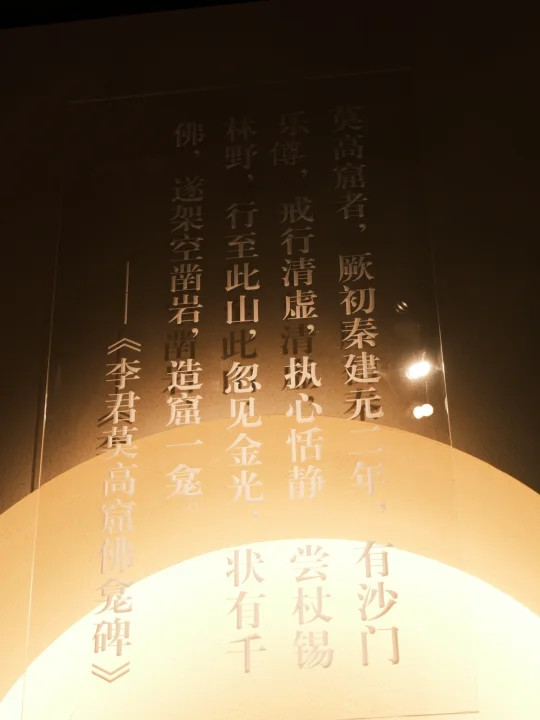 莫高窟者，厥初秦建元二年，有沙门
乐僔，戒行清虚，执心恬静 尝杖锡
林野，行至此山，忽见金光，状有千
佛，遂架空凿岩，造窟一龛。
——《李君莫高窟佛龛碑》